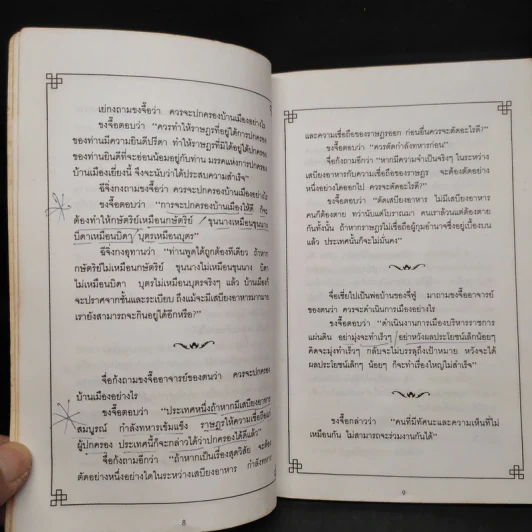 เย่กงถามขงจื๊อว่า ควรจะปกครองบ้านเมืองอย่างไร
ขงจื๊อตอบว่า "ควรทำให้ราษฎรที่อยู่ใต้การปกครอง
ของท่านมีความยินดีปรีดา ทำให้ราษฎรที่มิได้อยู่ใต้ปกครอง
ของท่านยินดีที่จะอ่อนน้อมอยู่กับท่าน มรรคแห่งการปกครอง
บ้านเมืองเยี่ยงนี้ จึงจะนับว่าได้ประสบความสำเร็จ"
ฉีจิ่งกงถามขงจื๊อว่า ควรจะปกครองบ้านเมืองอย่างไร
ขงจื๊อตอบว่า "การจะปกครองบ้านเมืองให้ดี ก็จะ
ต้องทำให้กษัตริย์เหมือนกษัตริย์ ขุนนางเหมือนขุนนาง
บิดาเหมือนบิดา บุตรเหมือนบุตร"
ฉีจิ่งกงอุทานว่า "ท่านพูดได้ถูกต้องทีเดียว ถ้าหาก
กษัตริย์ไม่เหมือนกษัตริย์ ขุนนางไม่เหมือนขุนนาง บิดา
ไม่เหมือนบิดา บุตรไม่เหมือนบุตรจริงๆ แล้ว บ้านเมืองก็
จะปราศจากชั้นและระเบียบ ถึงแม้จะมีเสบียงอาหารมากมาย
เรายังสามารถจะกินอยู่ได้อีกหรือ?"
จื่อก้งถามขงจื๊ออาจารย์ของตนว่า ควรจะปกครอง
บ้านเมืองอย่างไร
ขงจื๊อตอบว่า "ประเทศหนึ่งถ้าหากมีเสบียงอาหาร
สมบูรณ์ กำลังทหารเข้มแข็ง ราษฎรให้ความเชื่อถือแก่
ผู้ปกครอง ประเทศนี้ก็จะกล่าวได้ว่าปกครองได้ดีแล้ว"
จื่อก้งถามอีกว่า "ถ้าหากเป็นเรื่องสุดวิสัย จะต้อง
ตัดอย่างหนึ่งอย่างใดในระหว่างเสบียงอาหาร กำลังทหาร
8
และความเชื่อถือของราษฎรออก ก่อนอื่นควรจะตัดอะไรดี?"
ขงจื๊อตอบว่า "ควรตัดกำลังทหารก่อน"
จื่อก้งถามอีกว่า "หากมีความจำเป็นจริงๆ ในระหว่าง
เสบียงอาหารกับความเชื่อถือของราษฎร จะต้องตัดอย่าง
หนึ่งอย่างใดออกไป ควรจะตัดอะไรดี?"
ขงจื๊อตอบว่า "ตัดเสบียงอาหาร ไม่มีเสบียงอาหาร
คนก็ต้องตาย ทว่านับแต่โบราณมา คนเราล้วนแต่ต้องตาย
กันทั้งนั้น ถ้าหากราษฎรไม่เชื่อถือผู้กุมอำนาจซึ่งอยู่เบื้องบน
แล้ว ประเทศนั้นก็จะไม่มั่นคง"
จื่อเซี่ยไปเป็นพ่อบ้านของจี่ฟู่ มาถามขงจื๊ออาจารย์
ของตนว่า ควรจะดำเนินการเมืองอย่างไร
ขงจื๊อตอบว่า "ดำเนินงานการเมืองบริหารราชการ
แผ่นดิน อย่ามุ่งจะทำเร็วๆ อย่าหวังผลประโยชน์เล็กน้อยๆ
คิดจะมุ่งทำเร็วๆ กลับจะไม่บรรลุถึงเป้าหมาย หวังจะได้
ผลประโยชน์เล็กๆ น้อยๆ ก็จะทำเรื่องใหญ่ไม่สำเร็จ"
ขงจื๊อกล่าวว่า "คนที่มีทัศนะและความเห็นที่ไม่
เหมือนกัน ไม่สามารถจะร่วมงานกันได้"
9